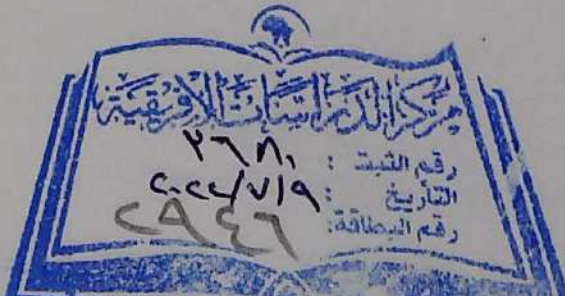 مركز الدراسات الإفريقية
رقم الثبت : ٢٦٨٠
التاريخ : ٢٠٢٢/٧/٩
رقم البطاقة: ٢٩٤٦